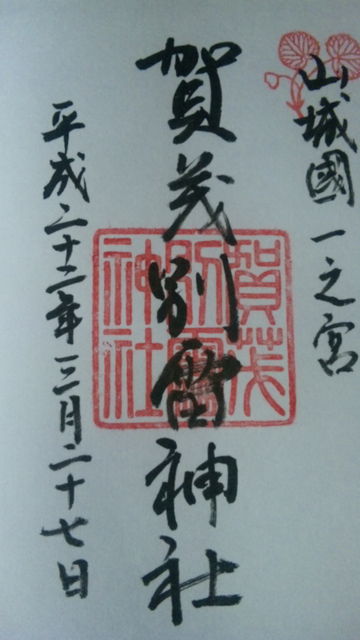 山城國一之宮
賀茂別雷神社
賀茂別雷神社
平成二十二年三月二十七日